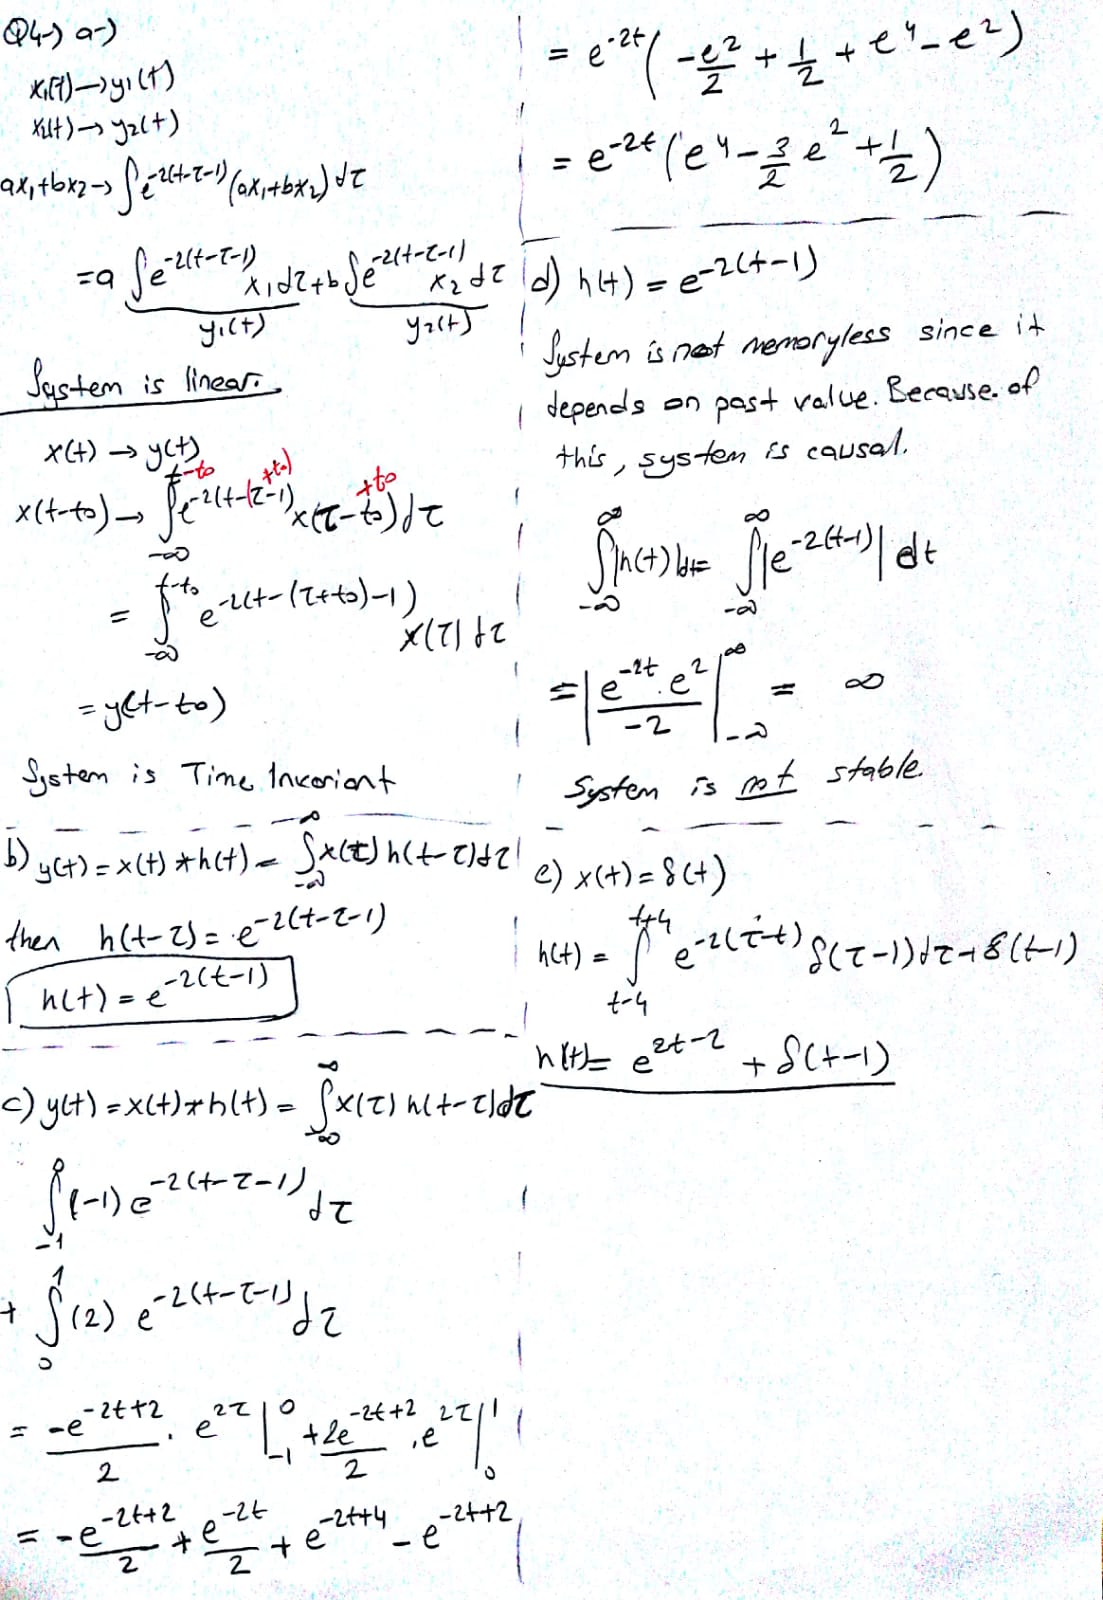 Q4-) a-)
x₁(t) → y₁(t)
x₂(t) → y₂(t)
ax₁+bx₂ → ∫e^-2(t-τ-1) (ax₁+bx₂) dτ
= a ∫e^-2(t-τ-1) x₁dτ + b ∫e^-2(t-τ-1) x₂ dτ
y₁(t) y₂(t)
System is linear.
x(t) → y(t)
x(t-to) → ∫_-∞^t-to e^-2(t-(τ-1)+to) x(τ-to+to) dτ
= ∫_-∞^t-to e^-2(t-(τ+to)-1) x(τ) dτ
= y(t-to)
System is Time Invariant
b) y(t) = x(t) * h(t) = ∫_-∞^-∞ x(τ) h(t-τ) dτ
then h(t-τ) = e^-2(t-τ-1)
h(t) = e^-2(t-1)
c) y(t) = x(t) * h(t) = ∫_-∞^∞ x(τ) h(t-τ) dτ
∫_-1^0 (-1) e^-2(t-τ-1) dτ
+ ∫_0^1 (2) e^-2(t-τ-1) dτ
= -e^-2t+2 / 2 . e^2τ |_-1^0 + 2e^-2t+2 / 2 . e^2τ |_0^1
= -e^-2t+2 / 2 + e^-2t / 2 + e^-2t+4 - e^-2t+2
= e^-2t ( -e^2/2 + 1/2 + e^4 - e^2)
= e^-2t (e^4 - 3/2 e^2 + 1/2)
d) h(t) = e^-2(t-1)
System is not memoryless since it
depends on past value. Because of
this, system is causal.
∫_-∞^∞ |h(t)| dt = ∫_-∞^∞ |e^-2(t-1)| dt
= | e^-2t . e^2 / -2 |_-∞^∞ = ∞
System is not stable.
e) x(t) = δ(t)
h(t) = ∫_t-4^t+4 e^-2(τ-t) δ(τ-1) dτ + δ(t-1)
h(t) = e^2t-2 + δ(t-1)